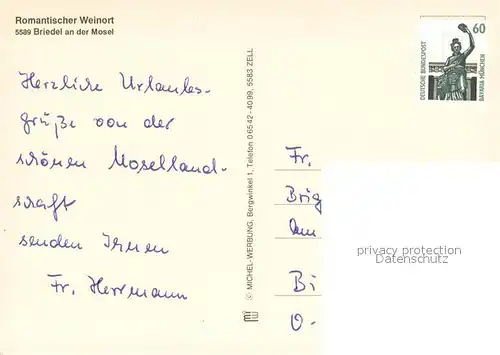 Romantischer Weinort
5589 Briedel an der Mosel
Herzliche Urlaubs-
grüße von der
schönen Mosellland-
schaft
senden Ihnen
Fr. Herrmann
© MICHEL-WERBUNG, Bergwinkel 1, Telefon 0 65 42 - 40 99, 5583 ZELL
60
DEUTSCHE BUNDESPOST
BAVARIA MÜNCHEN
Fr.
Brig
Am
Bi
O-
privacy protection
Datenschutz